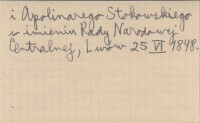 i Apolinarego Stokowskiego
w imieniu Rady Narodowej
Centralnej, Lwów 25 VI 1848.